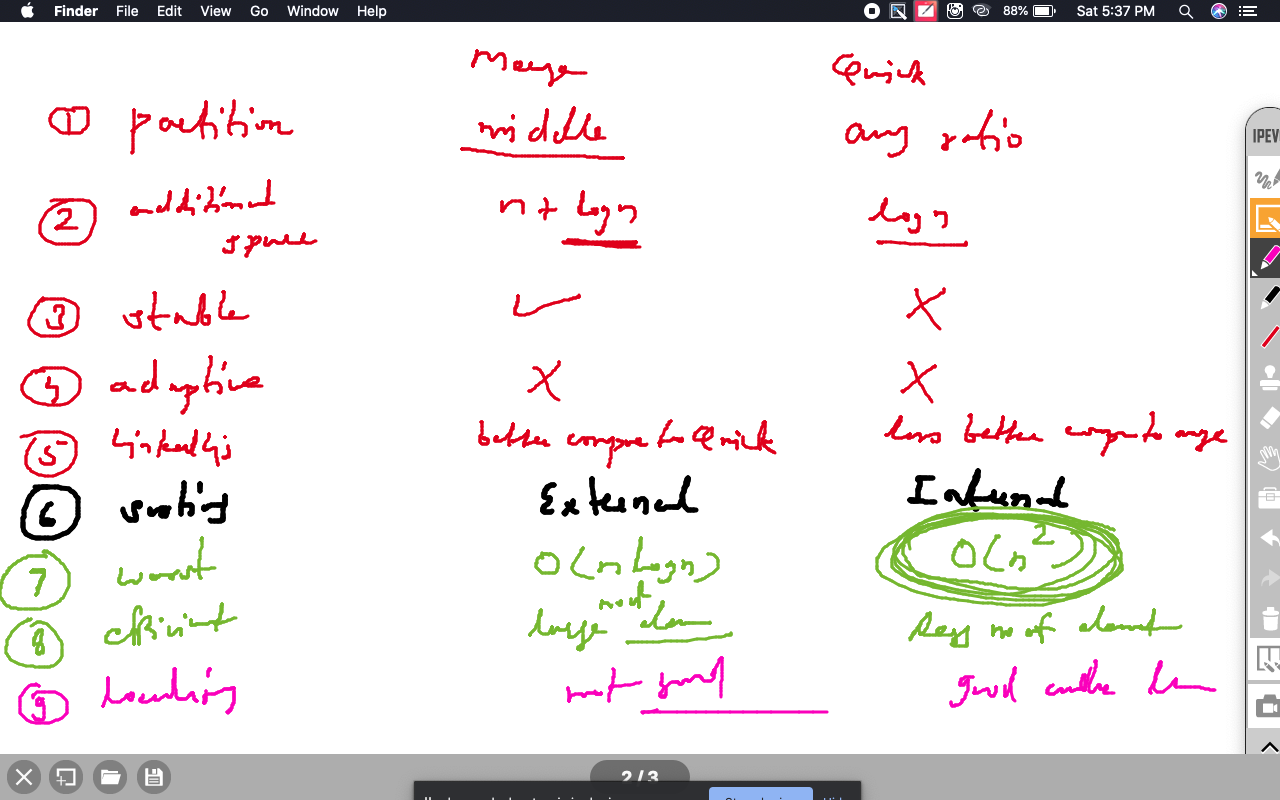 Finder File Edit View Go Window Help 88% Sat 5:37 PM
Merge Quick
1 partition middle any ratio
2 additional space n + log n log n
3 stable ✓ X
4 adaptive X X
5 better compare to Quick less better compare to merge
6 sorting External Internal
7 worst O(n log n) O(n²)
8 efficient large no of elem less no of element
9 not good good cache
IPEV
2 / 3